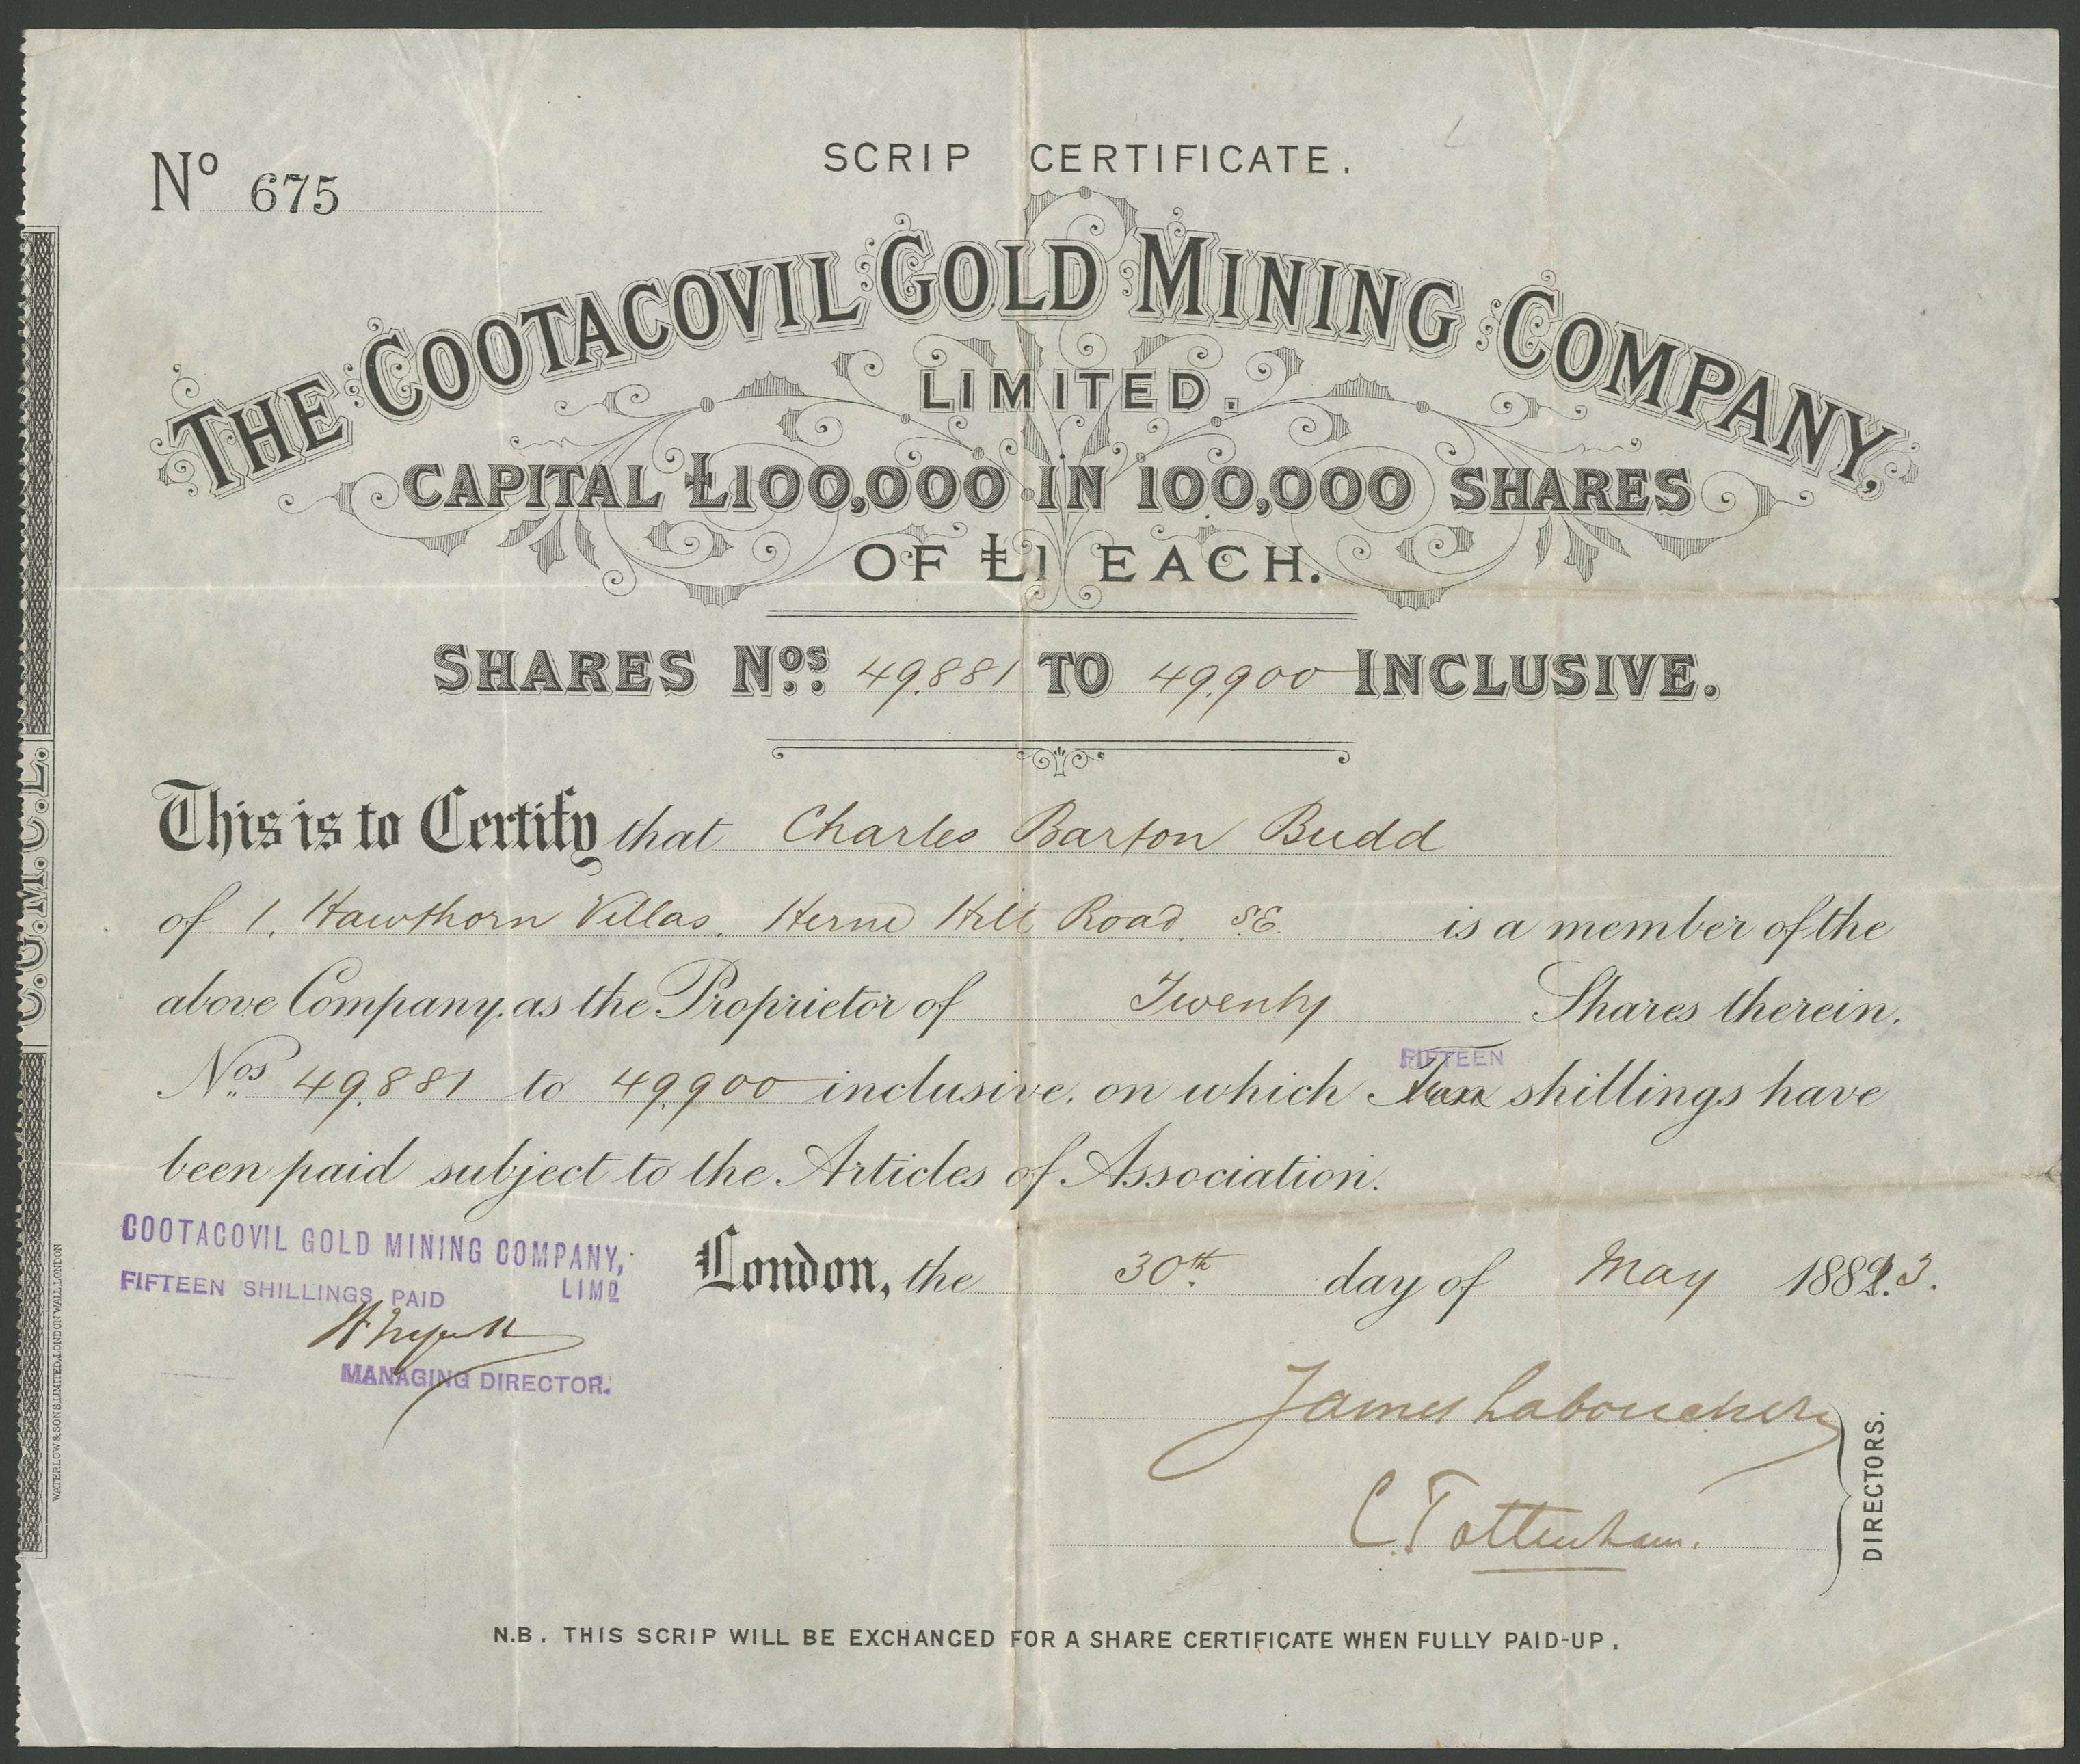 SCRIP CERTIFICATE.
Nº 675
THE COOTACOVIL GOLD MINING COMPANY,
LIMITED.
CAPITAL £100,000 IN 100,000 SHARES
OF £1 EACH.
SHARES Nos. 49,881 TO 49,900 INCLUSIVE.
This is to Certify that Charles Barton Budd
of 1. Hawthorn Villas. Herne Hill Road. S.E. is a member of the
above Company, as the Proprietor of Twenty Shares therein.
FIFTEEN
Nos. 49,881 to 49,900 inclusive, on which Ten shillings have
been paid subject to the Articles of Association.
COOTACOVIL GOLD MINING COMPANY,
LIMD
FIFTEEN SHILLINGS PAID
MANAGING DIRECTOR.
London, the 30th day of May 1882.3.
James Labouchere
C Tottenham.
DIRECTORS.
N.B. THIS SCRIP WILL BE EXCHANGED FOR A SHARE CERTIFICATE WHEN FULLY PAID-UP.
C.G.M.C.L.
WATERLOW & SONS LIMITED, LONDON WALL, LONDON